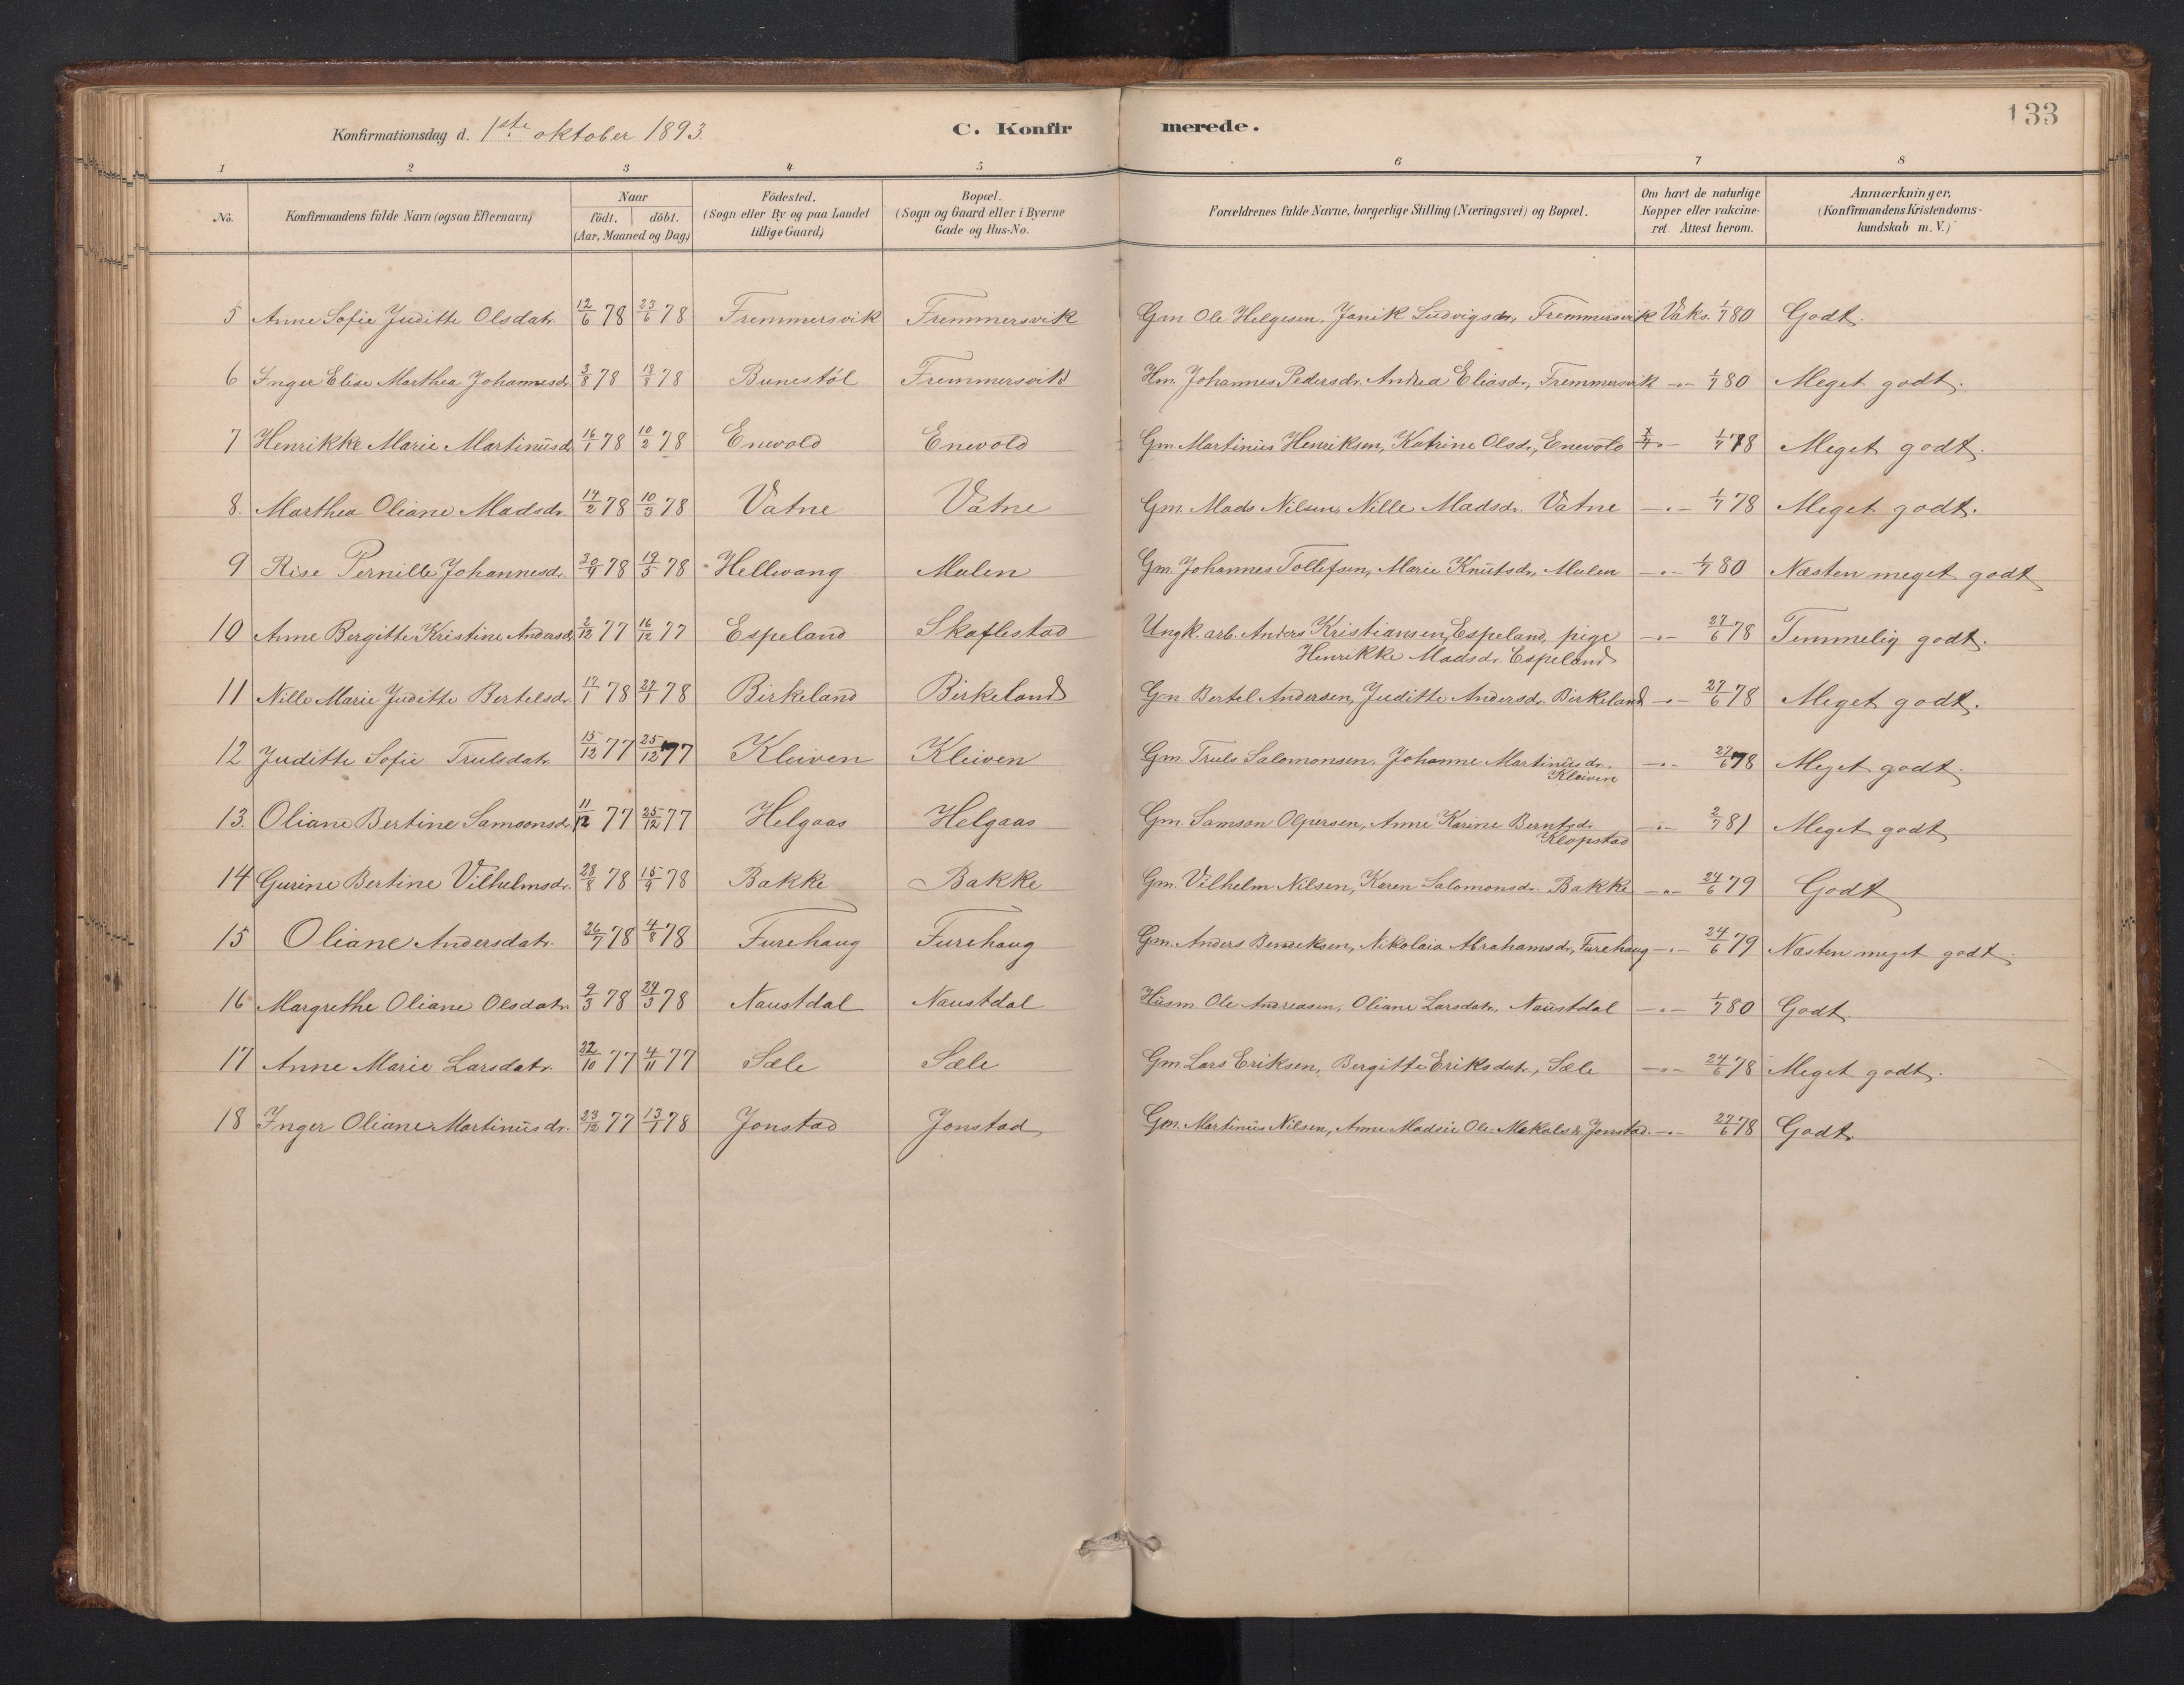 133
Konfirmationsdag d. 1ste oktober 1893. C. Konfirmerede.
1 2 3 4 5 6 7 8
No. Konfirmandens fulde Navn (ogsaa Efternavn) Naar födt. döbt. (Aar, Maaned og Dag) Födested. (Sogn eller By og paa Landet tillige Gaard) Bopæl. (Sogn og Gaard eller i Byerne Gade og Hus-No. Forældrenes fulde Navne, borgerlige Stilling (Næringsvei) og Bopæl. Om havt de naturlige Kopper eller vakcineret Attest herom. Anmærkninger, (Konfirmandens Kristendomskundskab m. V.)
5 Anne Sofie Juditte Olsdatr. 12/6 78 23/6 78 Fremmersvik Fremmersvik Gm Ole Helgesen, Janik Ludvigsdr, Fremmersvik Vaks. 1/7 80 Godt.
6 Inger Elise Marthea Johannesdr. 3/8 78 18/8 78 Bunestöl Fremmersvik Hm. Johannes Pedersdr. Andrea Eliasdr, Fremmersvik -"- 1/7 80 Meget godt.
7 Henrikke Marie Martinusdr 16/1 78 10/2 78 Enevold Enevold Gm. Martinus Henriksen, Katrine Olsdr, Enevold -"- 1/7 78 Meget godt.
8. Marthea Oliane Madsdr. 14/2 78 10/3 78 Vatne Vatne Gm. Mads Nilsen, Nille Madsdr. Vatne -"- 1/7 78 Meget godt.
9 Rise Pernille Johannesdr. 30/4 78 19/5 78 Hellevang Malen Gm. Johannes Tollefsen, Marie Knutsdr, Malen -"- 1/7 80 Næsten meget godt
10 Anne Bergitte Kristine Andersdr 2/12 77 16/12 77 Espeland Skaflestad Ungk. arb. Anders Kristiansen, Espeland, pige -"- 27/6 78 Temmelig godt.
Henrikke Madsdr. Espeland
11 Nille Marie Juditte Bertelsdr. 17/1 78 27/1 78 Birkeland Birkeland Gm. Bertel Andersen, Juditte Andersdr. Birkeland -"- 27/6 78 Meget godt.
12 Juditte Sofie Trulsdatr. 15/12 77 25/12 77 Kleiven Kleiven Gm Truls Salomonsen. Johanne Martinusdr. -"- 27/6 78 Meget godt.
Kleiven
13. Oliane Bertine Samsonsdr. 11/12 77 25/12 77 Helgaas Helgaas Gm. Samson Olpersen, Anne Karine Berntsdr. -"- 2/7 81 Meget godt
Klopstad
14 Gurine Bertine Vilhelmsdr. 28/8 78 15/9 78 Bakke Bakke Gm. Vilhelm Nilsen, Karen Salomonsdr. Bakke -"- 24/6 79 Godt
15 Oliane Andersdatr. 26/7 78 4/8 78 Furehaug Furehaug Gm. Anders Bendiksen, Nikolaia Abrahamsdr, Furehaug -"- 24/6 79 Næsten meget godt.
16 Margrethe Oliane Olsdatr. 9/3 78 24/3 78 Naustdal Naustdal Husm Ole Andreasen, Oliane Larsdatr, Naustdal -"- 1/7 80 Godt.
17 Anne Marie Larsdatr. 22/10 77 4/11 77 Sæle Sæle Gm. Lars Eriksen, Bergitte Eriksdatr, Sæle -"- 24/6 78 Meget godt.
18 Inger Oliane Martinusdr. 23/12 77 13/1 78 Jonstad Jonstad Gm. Martinus Nilsen, Anne Madsie Ole Jonstad. -"- 27/6 78 Godt.